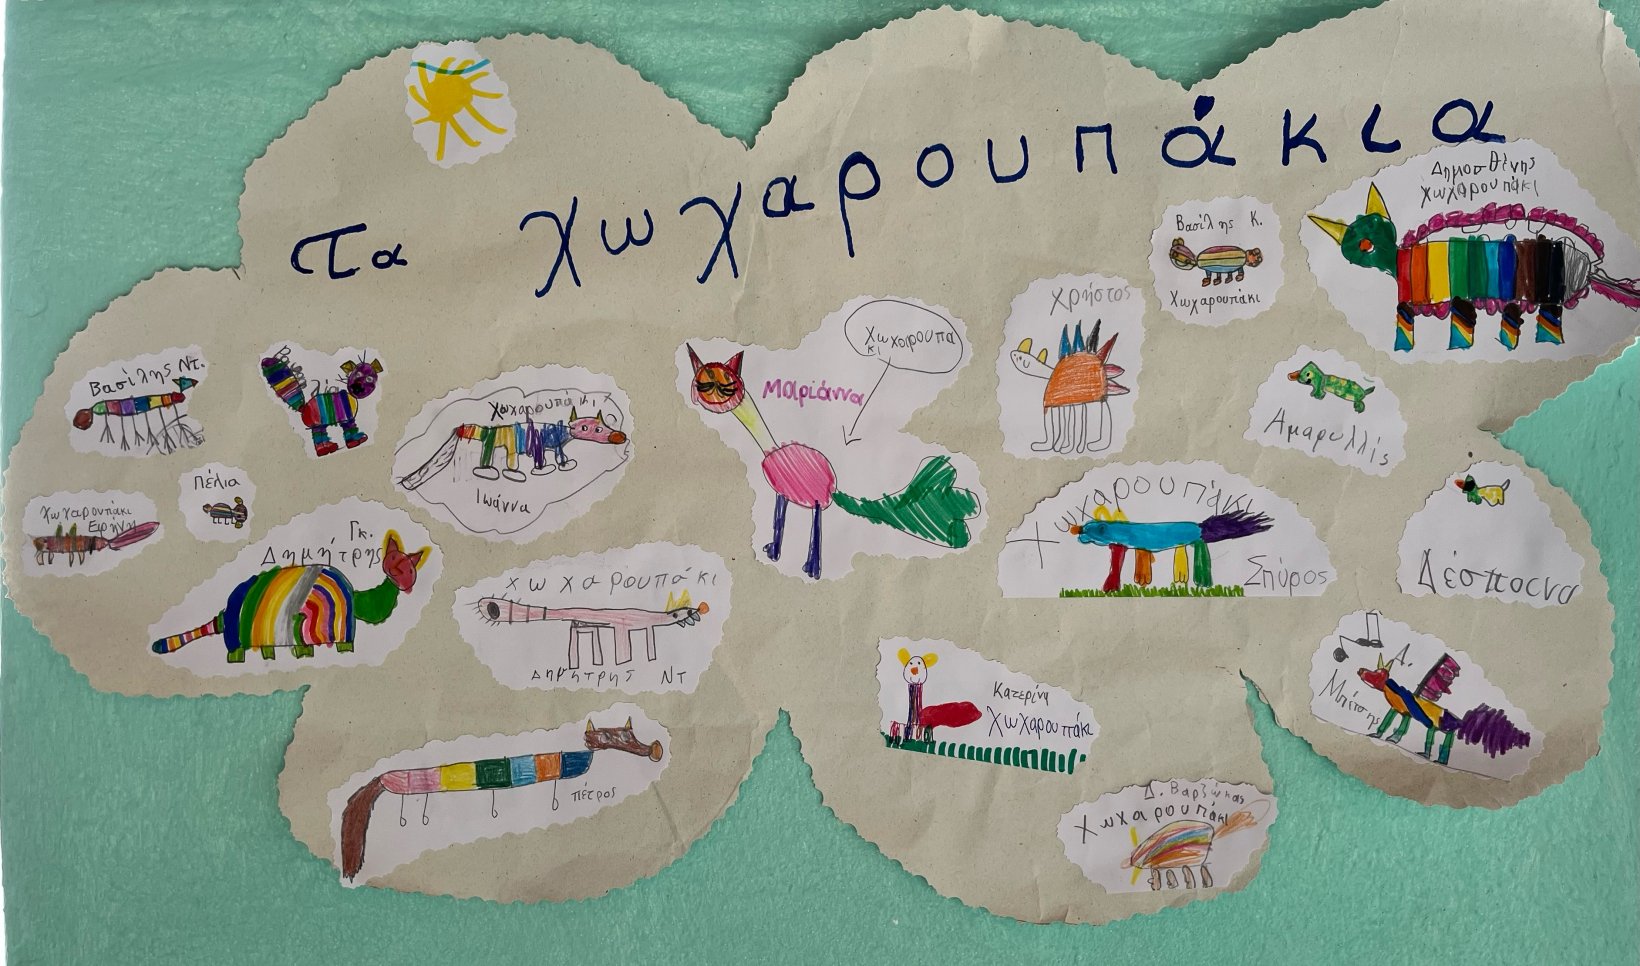 τα χωχαρουπάκια
Δημοσθένης
χωχαρουπάκι
Βασίλης Κ.
Χωχαρουπάκι
Χρήστος
Χωχαρουπα
κι
Μαριάννα
Βασίλης Ντ.
Χωχαρουπάκι
Ιωάννα
Αμαρυλλίς
Πέλια
Χωχαρουπάκι
Ειρήνη
Γκ.
Δημήτρης
χωχαρουπάκι
Δημήτρης Ντ
Χωχαρουπάκι
Σπύρος
Δέσποινα
Κατερίνη
Χωχαρουπάκι
Α.
Μπέτσης
πέτρος
Δ. Βαρζώκας
Χωχαρουπάκι